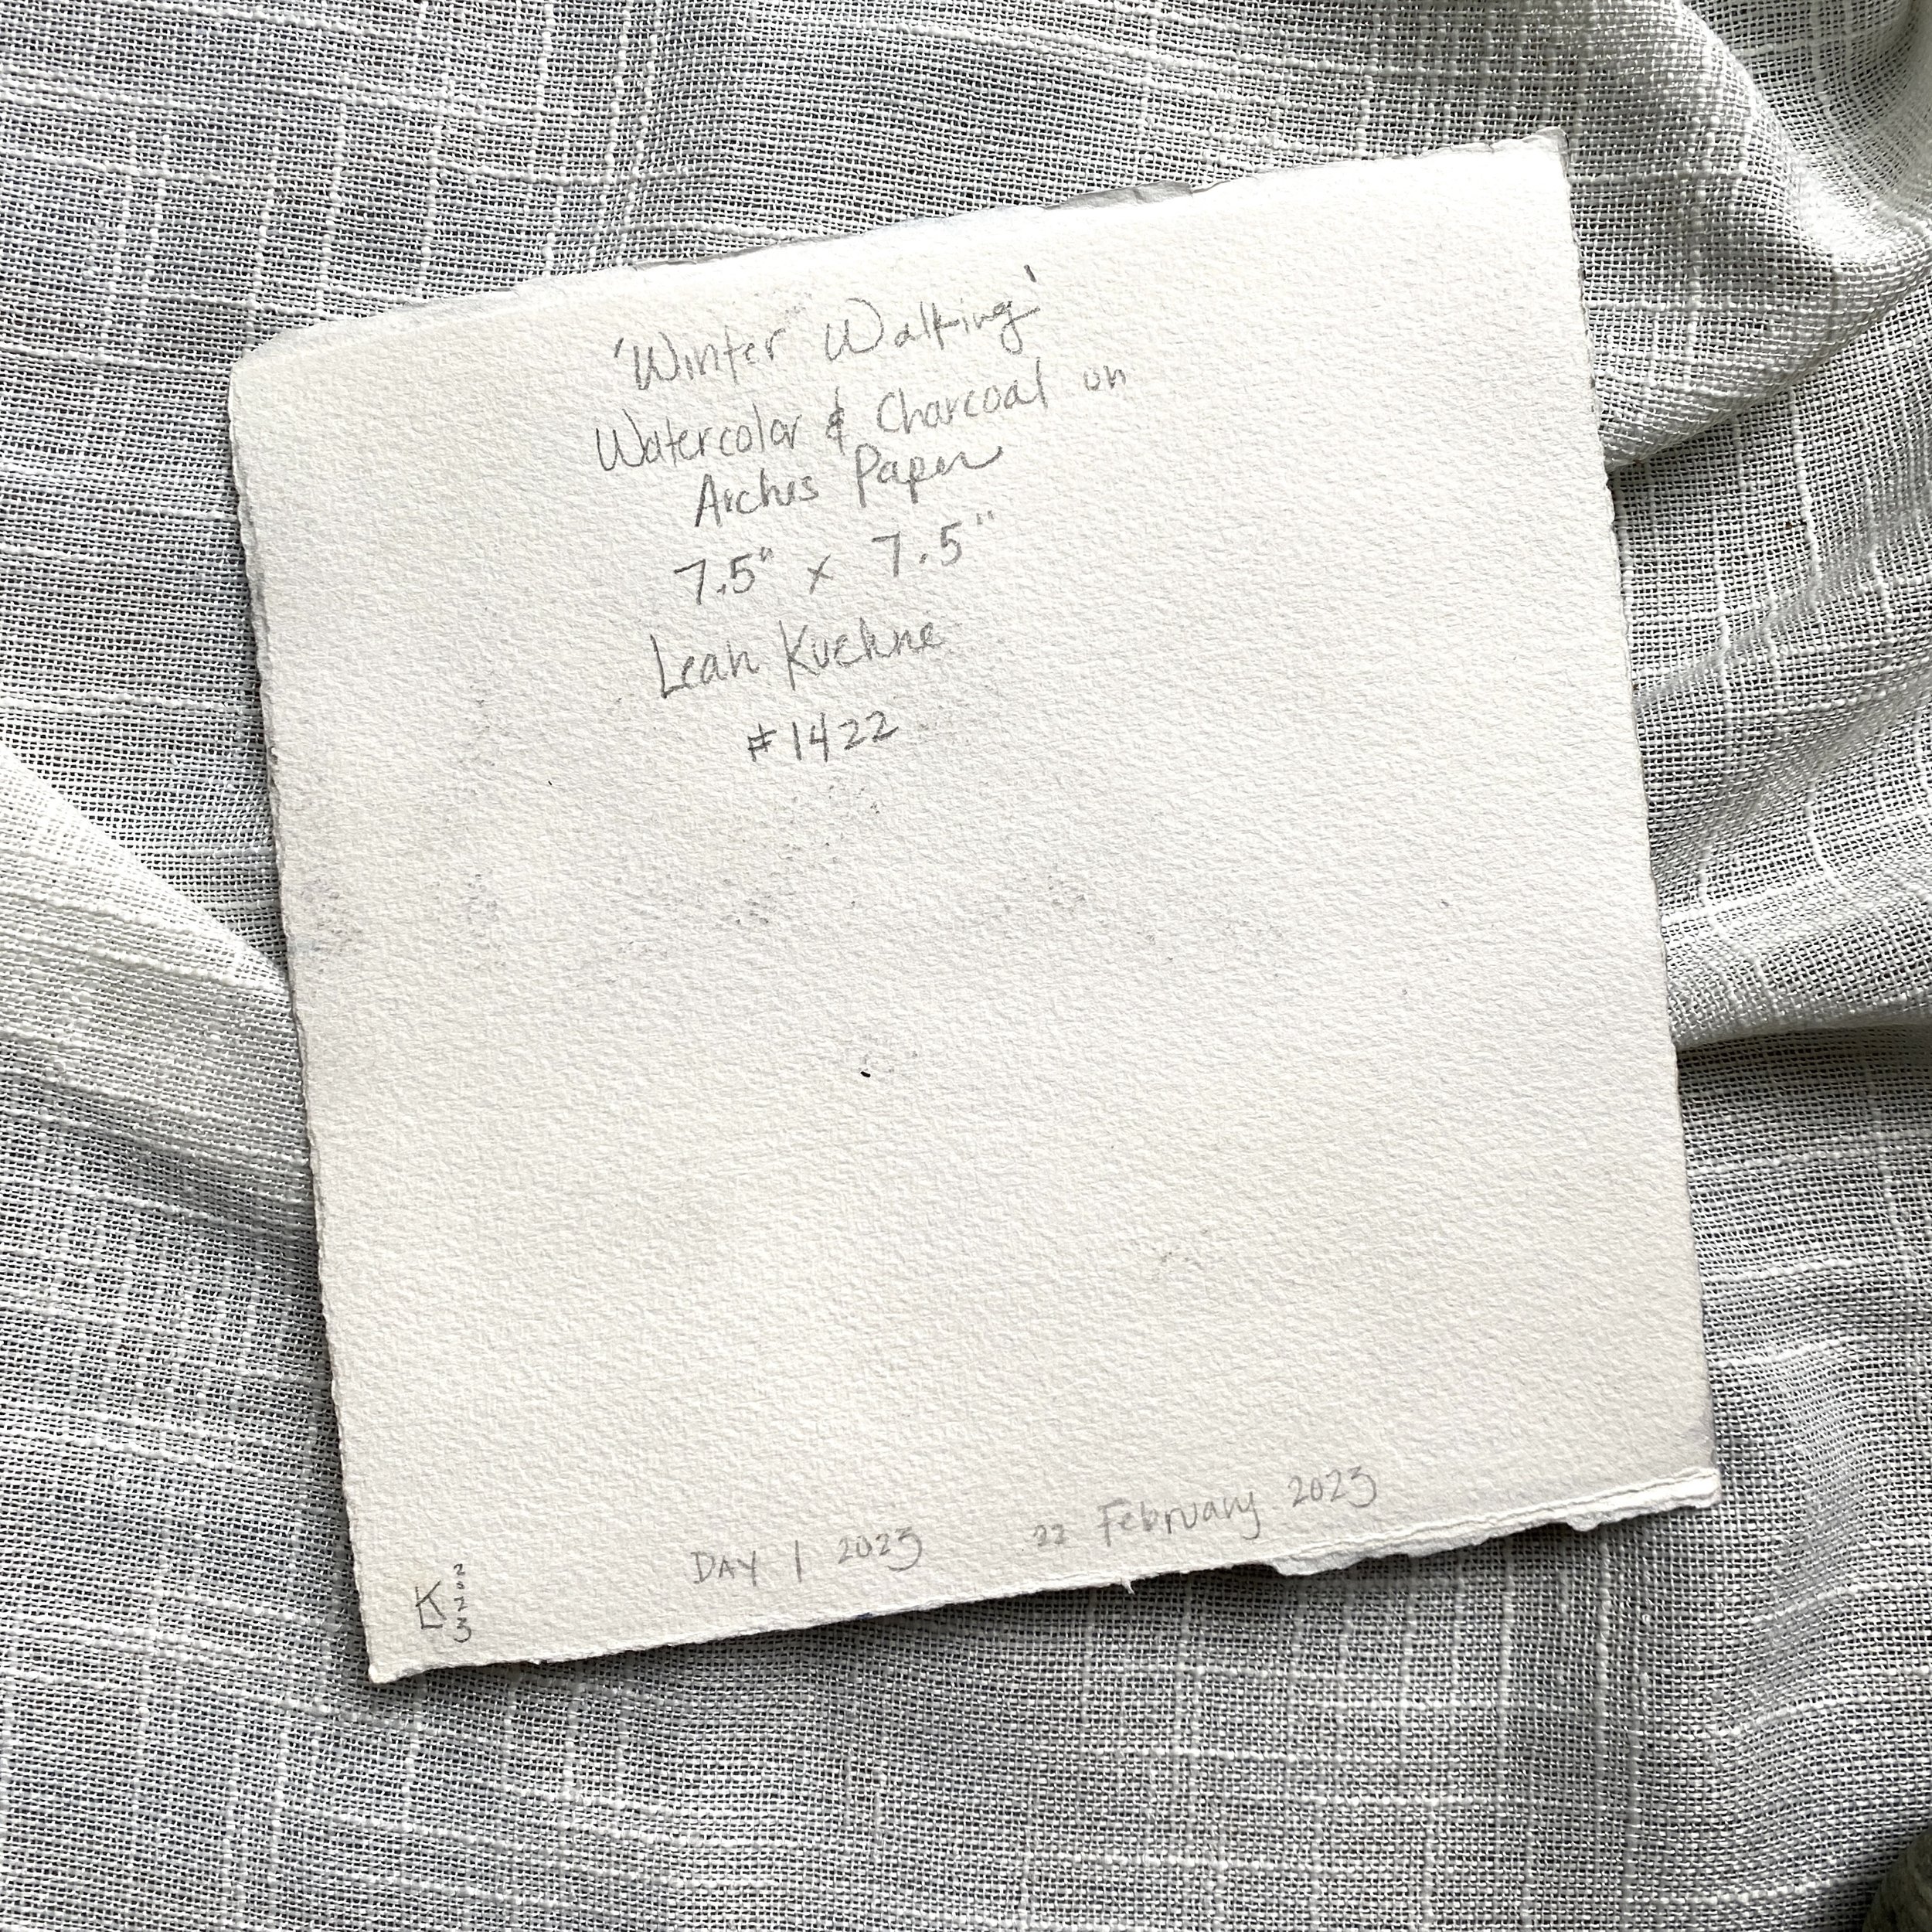 'Winter Walking'
Watercolor & Charcoal on
Arches Paper
7.5" x 7.5"
Leah Kuehne
#1422
DAY 1 2023 22 February 2023
LK 2023